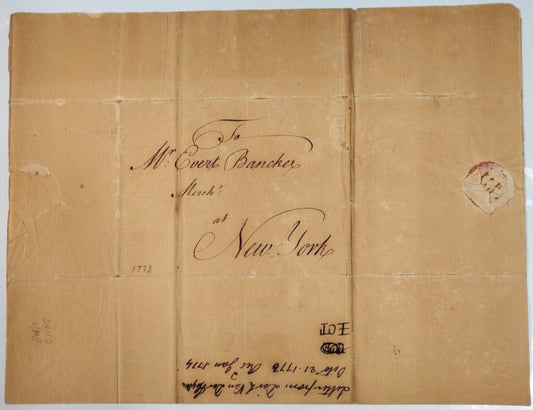 To
Mr. Evert Bancker
Mercht.
at
New York
1773
Letter from Dirk Van der
Octo 21. 1773 Rec Jan 1774
ICT